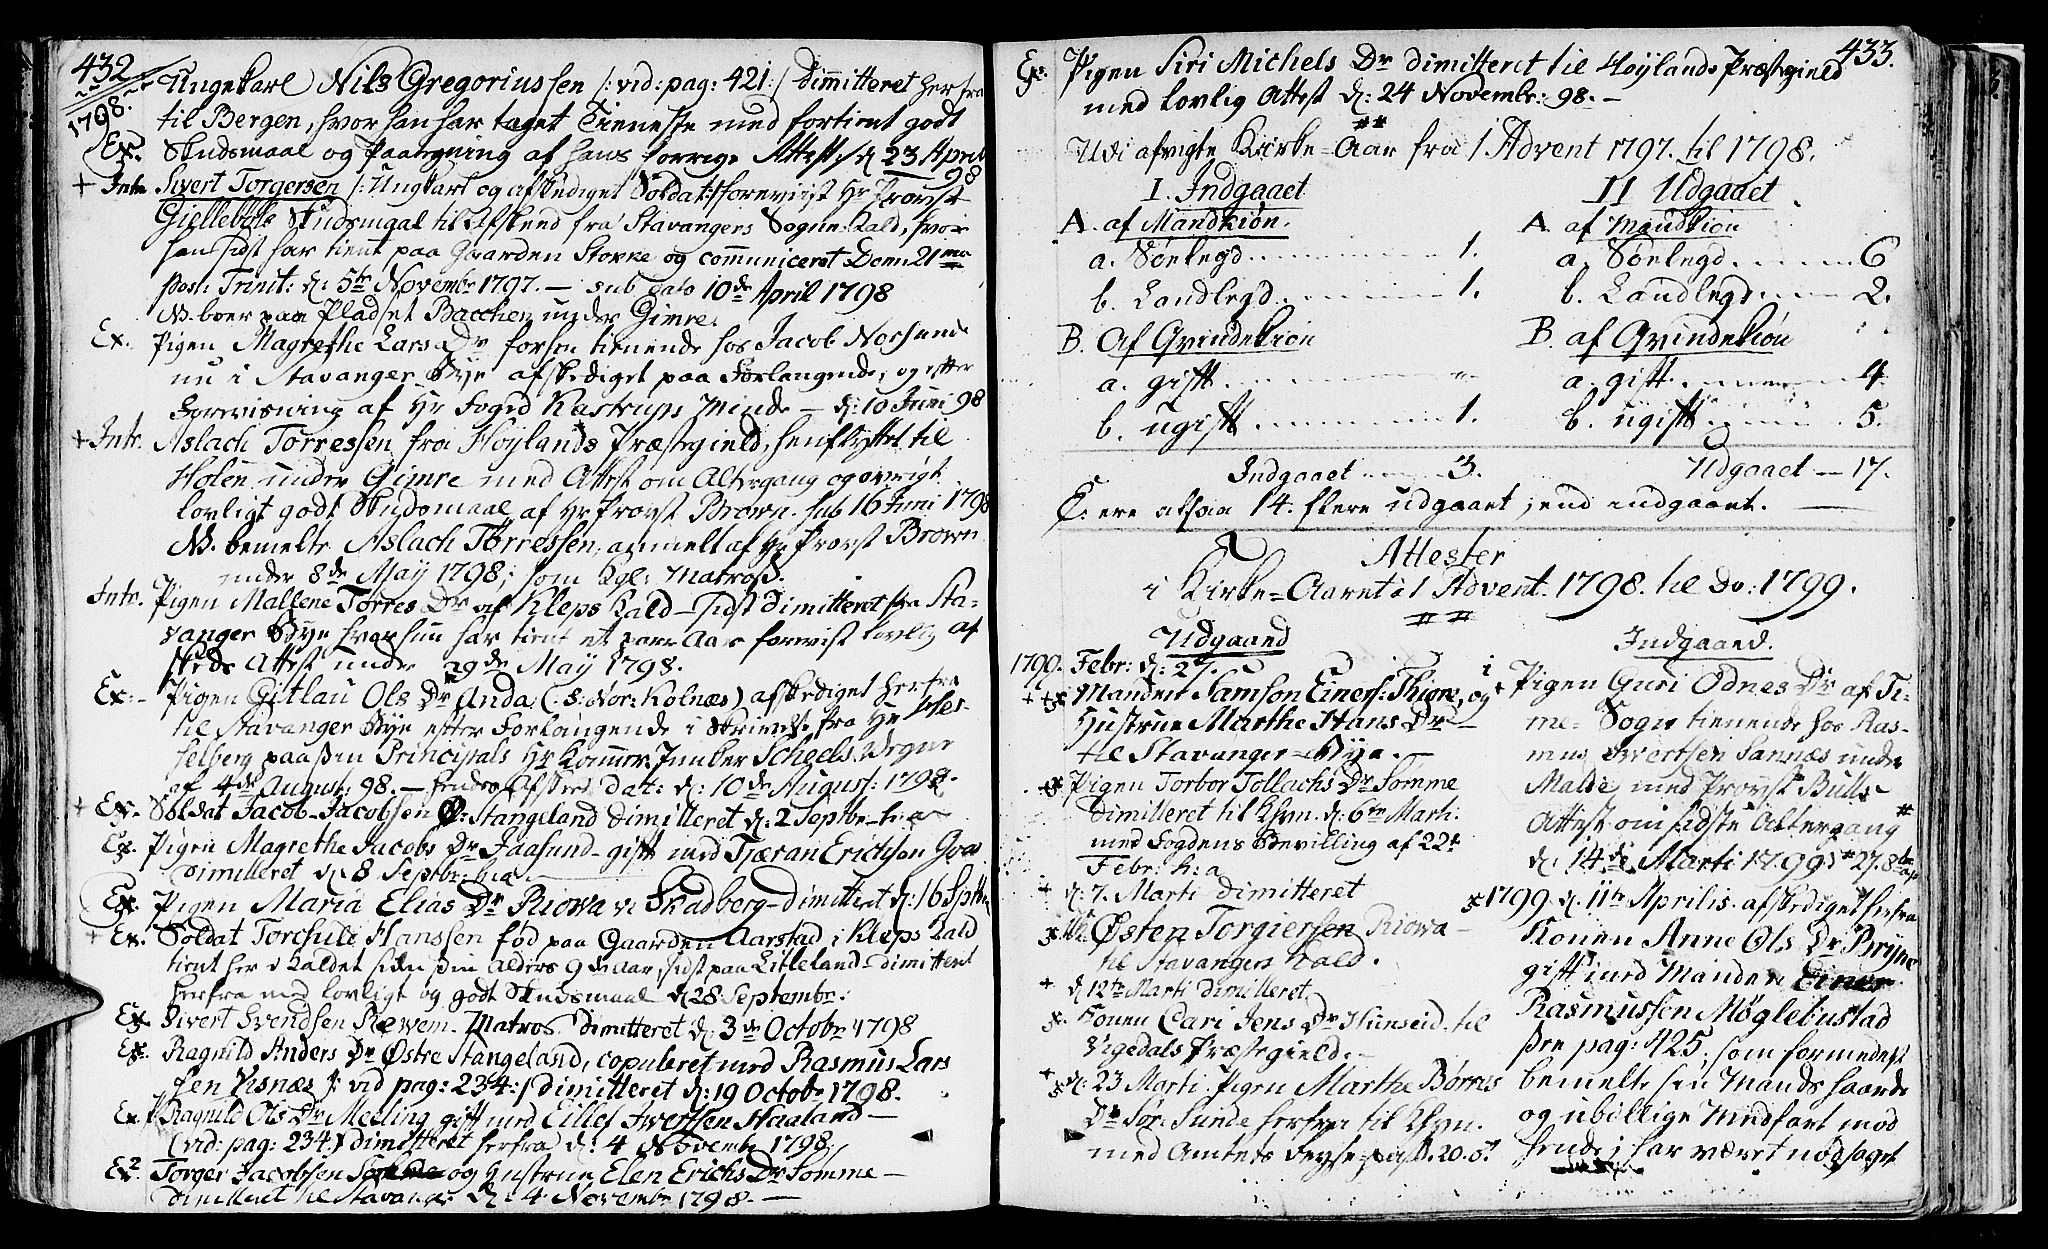 432
1798.
Ungekarl Nils Gregoriussen /: vid: pag: 421:/ dimitteret herfra
til Bergen, hvor han har taget Tieneste med fortient godt
Ex. Skudsmaal og Paategning af hans forrige Attest d. 23 April
98
+ Intr. Sivert Torgersen /: Ungkarl og afskediget Soldat:/ foreviist Hr Provst
Giellebøls Skudsmaal til Afskeed fra Stavangers Sogne-Kald, hvor
han sidst har tient paa Gaarden Stokke og communiceret Dom: 21ma
post: Trinit: d. 5te Novembr 1797. — sub dato 10de April 1798
NB. boer paa Pladset Bacchen under Gimre.
Ex. Pigen Magrethe Lars Dr forhen tienende hos Jacob Norsunde
nu i Stavanger Bye afskediget paa Forlangende, og efter
Forevisning af Hr Foged Kastrups Minde — d: 10 Juni 98
+ Intr. Aslach Torressen fra Høylands Præstegield, henflyttet til
Holen under Gimre med Attest om Altergang og øvrigt
lovligt godt Skudsmaal af Hr Provst Brown. sub 16 Juni 1798
NB. bemelte Aslach Tørressen, anmelt af Hr Provst Brown
under 8de May 1798, som Kgl: Matros.
Intr. Pigen Mallene Torres Dr af Kleps Kald — sidst dimitteret fra Sta-
vanger Bye hvor hun har tient et parr Aar forevist lovlig Af
skeds Attest under 29de May 1798.
Ex: - Pigen Gitlau Ols Dr Anda (: S: Nor: Kolnæs) afskediget herfra
til Stavanger Bye efter Forlangende i Skrivelse fra Hr
paa sin Principals Hr Kammer Junker Scheels Vegne
af 4de August: 98. — hendes Afskeed dat: d: 10de August: 1798.
+ Ex. Soldat Jacob Jacobsen Ø: Stangeland dimitteret d: 2 Septbr h: a
Ex. Pigen Magrethe Jacobs Dr Jaasund — gift med Tjæran Erichsen Goa
dimitteret d. 8 Septbr: h: a.
Ex. Pigen Maria Elias Dr Riowa v: Skadberg — dimitteret d: 16 Septbr
+ Ex. Soldat Torchild Hanssen fød paa Gaarden Aarstad i Kleps Kald
tient her i Kaldet siden sin Alders 9de Aar, sidst paa Litleland — dimitteret
herfra med lovligt og godt Skudsmaal d. 28 Septembr:
Ex. Sivert Svendsen Rewem. Matros. Dimitteret d: 3de Octobr 1798
Ex. Ragnild Anders Dr Østre Stangeland, copuleret med Rasmus Lars
sen Visnæs /: vid pag: 234:/ dimitteret d: 19 Octobr 1798.
Ex. Ragnild Ols Dr Meeling gift med Eillef Iwertsen Haaland —
(vid: pag: 234:) dimitteret herfra d: 4 Novembr 1798:/
Ex2 Torger Jacobsen og Hustrue Elen Erichs Dr Somme —
dimitteret til Stavanger d: 4 Novembr 1798. —
433.
Ex: Pigen Siri Michels Dr dimitteret til Høylands Præstegield
med lovlig Attest d: 24 Novembr: 98. —
Udi afvigte Kirke-Aar fra 1 Advent 1797. til 1798.
I. Indgaaet
A. af Mandkiøn.
a. Søelegd 1.
b. Landlegd 1.
B. Af Qvindekiøn
a. gift "
b. ugift 1.
Indgaaet 3.
II Udgaaet
A. af Mandkiøn
a. Søelegd 6
b. Landlegd 2.
B. af Qvindekiøn
a. gift 4.
b. ugift 5.
Udgaaet — 17.
E: ere altsaa 14. flere udgaaet, end indgaaet. —
Attester
i Kirke-Aaret i 1 Advent. 1798. til Do: 1799.
Udgaaend
1799. Febr: d: 27.
Manden Samson Einers: Thiore, og
Hustrue Marthe Hans Dr —
til Stavanger-Bye. —
Pigen Torbor Tollachs Dr Somme
dimitteret til Khvn. d: 6te Marti:
med Fogdens Bevilling af 22t
Febr: h: a
+ d: 7. Marti dimitteret
Østen Torgiersen Riowa —
til Stavangers Kald.
+ d 12te Marti dimitteret
Konen Cari Jens Dr til
Vigedals Præstegield. —
d: 23 Marti. Pigen Marthe Børres
Dr Sør: Sunde herfra til Khvn.
med Amtets
Indgaaend.
Pigen Guri Odnes Dr af Ti-
me- Sogn tienende hos Ras-
mus Iwertsen Sannæs under
Malde, med Provst Bulls
Attest om sidste Altergang
d: 14de Marti 1799
1799. d. 11te Aprilis afskediget herfra
Konen Anne Ols Dr Bryne
gift med Manden Einer
Rasmussen Møglebustad
see pag: 425. som formedelst
bemelte sin Mands haarde
og ubillige Medfart mod
hende, har været nødsaget